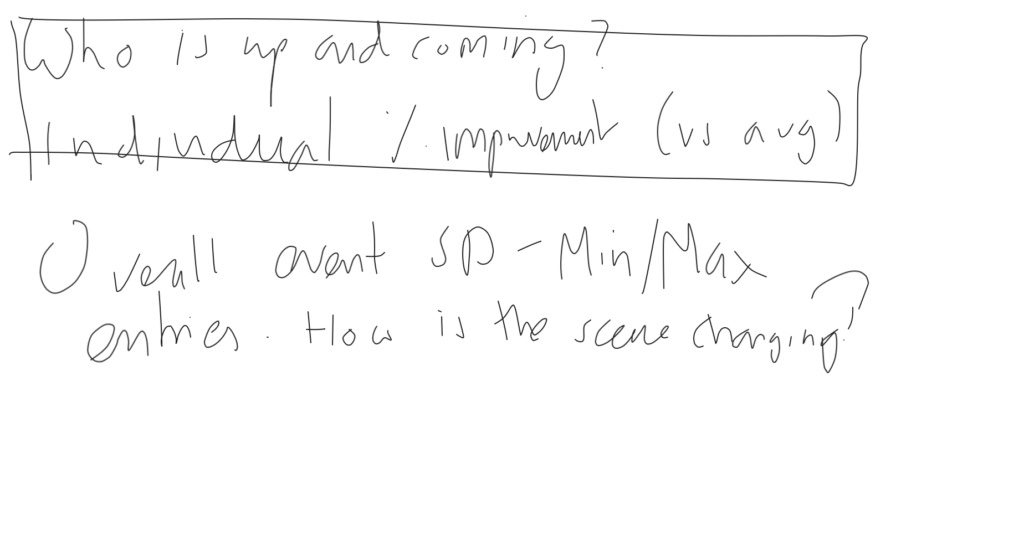 Who is up and coming?
Individual % improvement (vs avg)
Overall event SD - Min/Max
entries. How is the scene changing?